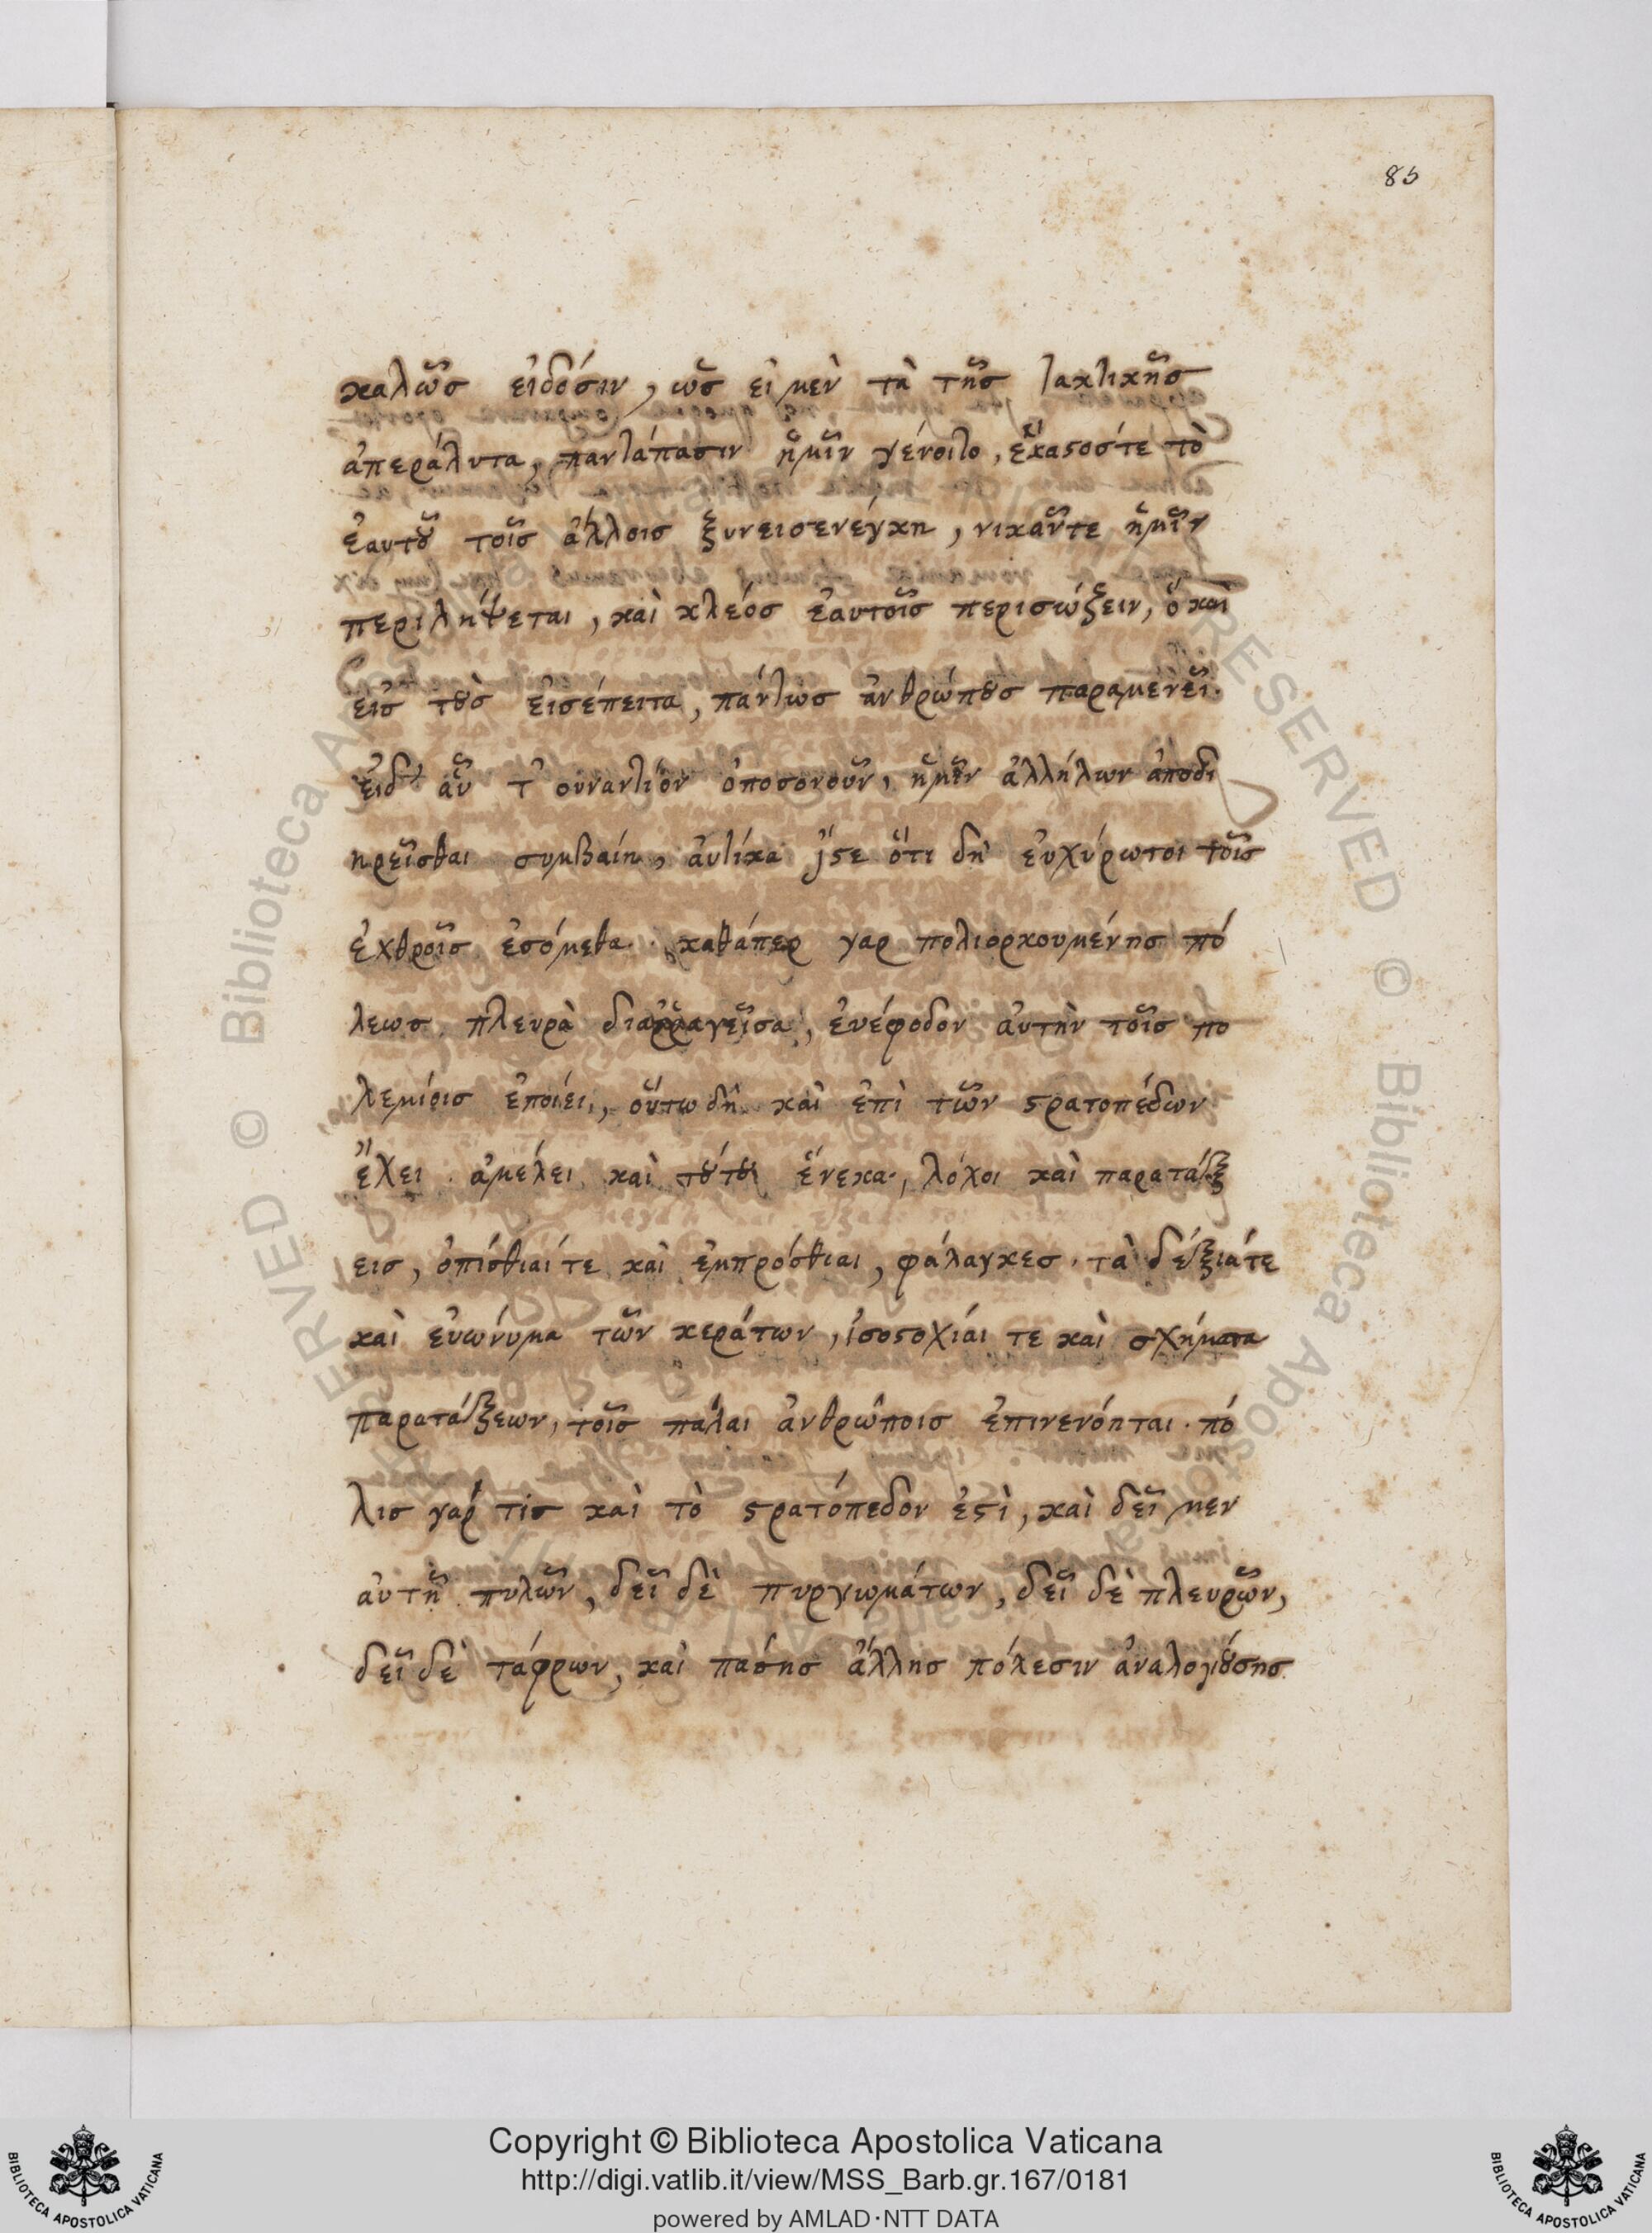 85
καλῶς εἰδόσιν, ὡς εἰ μὲν τὰ τῆς τακτικῆς
ἀπεράλυτα, παντάπασιν ἡμῖν γένοιτο, ἕκαστός τέ τὸ
ἑαυτοῦ τοῖς ἄλλοις ξυνεισενέγκη, νικᾶν τε ἡμῖν
περιλήψεται, καὶ κλέός ἑαυτοῖς περισώξειν, ὃ καὶ
εἰς τοὺς εἰσέπειτα, πάντως ἀνθρώπους παραμένει.
εἰδ' ἂν τ' οὐναντίον ὁποσονοῦν, ἡμῖν ἀλλήλων ἀποδι
ηρεῖσθαι συμβαίη, ἀυτίκα ἴστε ὅτι δὴ ἐυχύρωτοι τοῖς
ἐχθροῖς ἐσόμεθα. καθάπερ γαρ πολιορκουμένης πό
λεως πλευρὰ διαῤῥαγεῖσα, ἐυέφοδον ἀυτὴν τοῖς πο
λεμίοις ἐποίει, οὕτω δὴ καὶ ἐπὶ τῶν στρατοπέδων
ἔχει. ἀμέλει καὶ τούτου ἕνεκα, λόχοι καὶ παρατάξ
εις, ὀπίσθιαί τε καὶ ἐμπρόσθιαι, φάλαγκες. τὰ δέξιά τε
καὶ ἐυώνυμα τῶν κεράτων, ἰσοστοχίαι τε καὶ σχήματα
παρατάξεων, τοῖς πάλαι ἀνθρώποις ἐπινενόηται. πό
λις γάρ τίς καὶ τὸ στρατόπεδον ἐστὶ, καὶ δεῖ μεν
ἀυτῇ πυλῶν, δεῖ δὲ πυργωμάτων, δεῖ δὲ πλευρῶν,
δεῖ δὲ τάφρων, καὶ πάσης ἄλλης πόλεσιν ἀναλογούσης
© Biblioteca Apostolica Vaticana
Copyright © Biblioteca Apostolica Vaticana
http://digi.vatlib.it/view/MSS_Barb.gr.167/0181
powered by AMLAD·NTT DATA
BIBLIOTECA APOSTOLICA VATICANA
BIBLIOTECA APOSTOLICA VATICANA